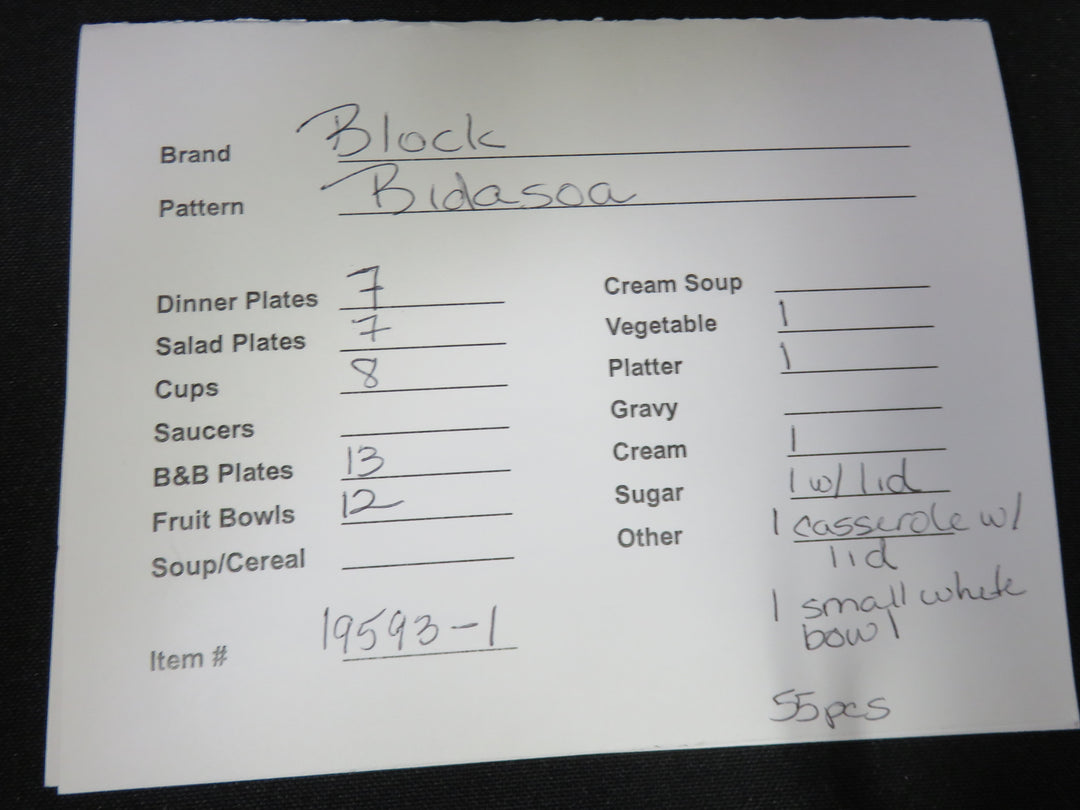 Brand Block
Pattern Bidasoa
Dinner Plates 7
Salad Plates 7
Cups 8
Saucers
B&B Plates 13
Fruit Bowls 12
Soup/Cereal
Item # 19593-1
Cream Soup
Vegetable 1
Platter 1
Gravy
Cream 1
Sugar 1 w/ lid
Other 1 casserole w/
lid
1 small white
bowl
55pcs